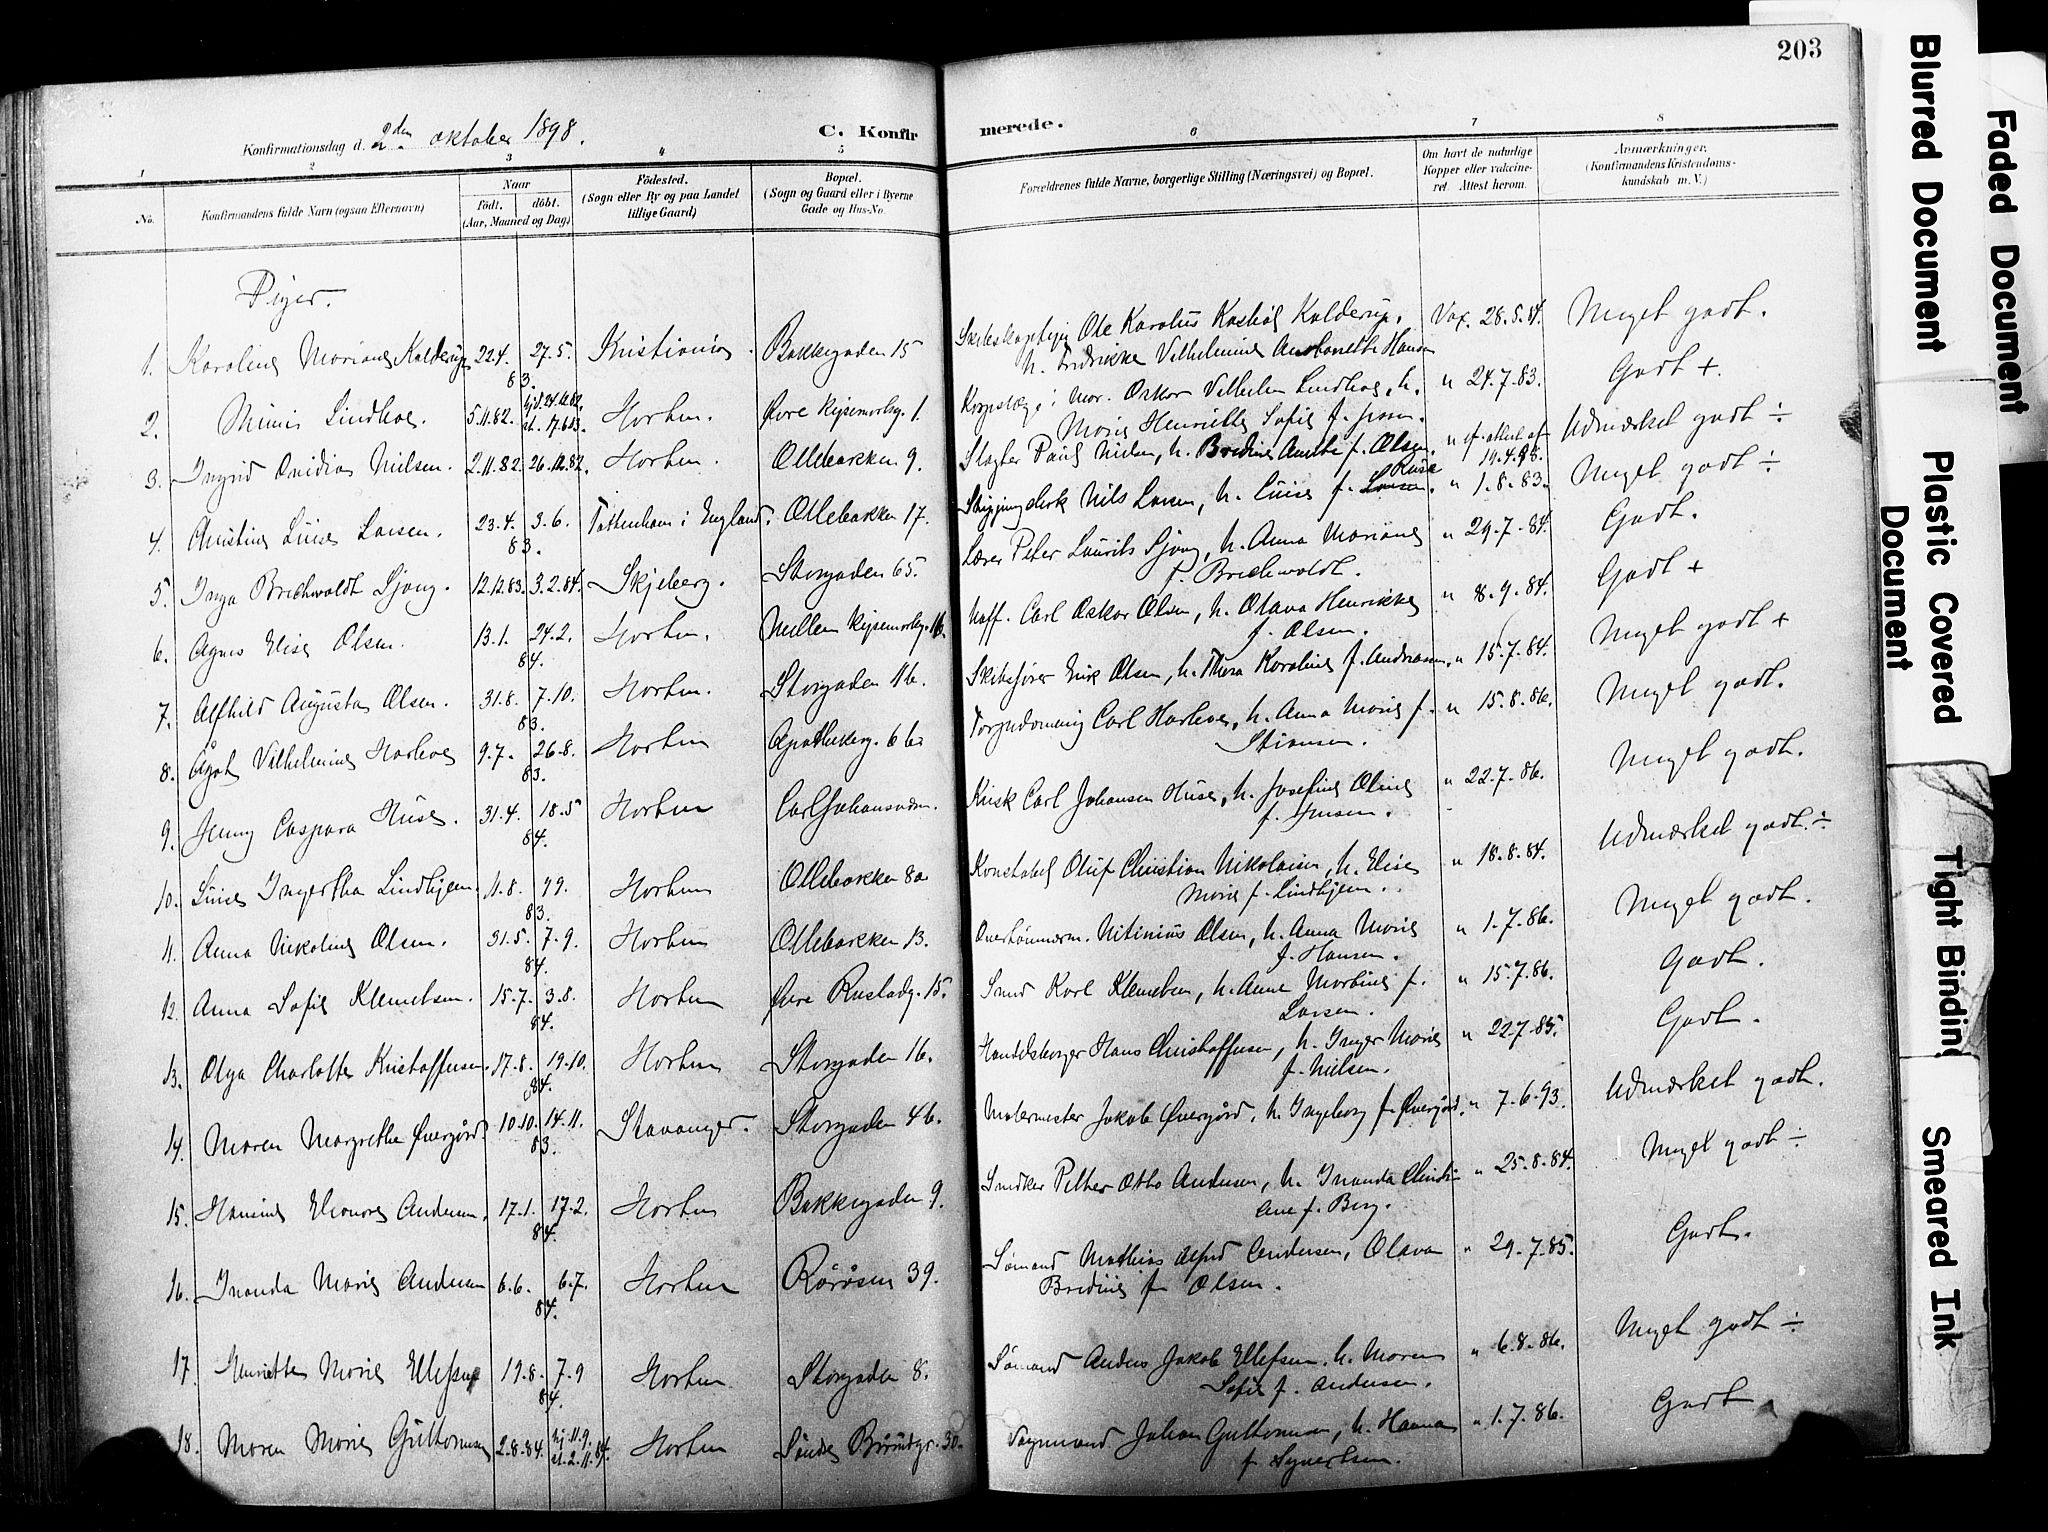 203
Konfirmationsdag d. 2den oktober 1898.
C. Konfirmerede.
1 2 3 4 5 6 7 8
No.
Konfirmandens fulde Navn (ogsaa Efternavn)
Naar
født. døbt.
(Aar, Maaned og Dag)
Fødested.
(Sogn eller By og paa Landet
tillige Gaard)
Bopæl.
(Sogn og Gaard eller i Byerne
Gade og Hus-No.
Forældrenes fulde Navne, borgerlige Stilling (Næringsvei) og Bopæl.
Om havt de naturlige
Kopper eller vakcine-
ret. Attest herom.
Anmærkninger.
(Konfirmandens Kristendoms-
kundskab m. V.)
Piger.
1. Karoline Mariane Kalderup 22.4. 27.5. 83. Kristiania. Bakkegaden 15 Ole Karolius Kalderup, h. Fredrikke Vilhelmine Antonette Hansen Vax. 28.5.84. Meget godt.
2. Mimi Lindhoe. 5.11.82. hjd. 24.12.82. st. 17.6.83. Horten. Øvre Keisemarksg. 1. Oskar Vilhelm Lindhoe, h.
Marie Henriette Sofie f. " 24.7.83. Godt +.
3. Ingrid Ovidia Nielsen. 2.11.82. 26.12.82. Horten. Ollebakken 9. Slagter Paul Nielsen, h. Bredine Amalie f. Olsen. " if. attest af 14.4.98. Udmærket godt ÷
4. Christine Luise Larsen. 23.4. 3.6. 83. Tottenham i England. Ollebakken 17. Skippingclerk Nils Larsen, h. Luise f. Larsen. " 1.8.83. Meget godt ÷
5. Inga Brechwoldt Sjong. 12.12.83. 3.2.84. Skjeberg. Storgaden 65. Lærer Peter Laurits Sjong, h. Anna Mariane
f. Brechwoldt. " 29.7.84. Godt.
6. Agnes Elise Olsen. 13.1. 24.2. 84. Horten. Mellem Keisemarksg. 16. Carl Oskar Olsen, h. Olava Henrikke
f. Olsen. " 8.9.84. Godt +
7. Alfhild Augusta Olsen. 31.8. 7.10. 83. Horten. Storgaden 16. Skibsfører Erik Olsen, h. Thea Karoline f. Andreasen. " 15.7.84. Meget godt +
8. Ågot Vilhelmine Harloe 9.7. 26.8. 83. Horten Apothekerg. 6 b. Carl Harloe, h. Anna Marie f.
Stiansen. " 15.8.86. Meget godt.
9. Jenny Caspara Huse. 31.4. 18.5 84. Horten Carljohansværn. Kusk Carl Johansen Huse, h. Josefine Oline
f. Jensen. " 22.7.86. Meget godt.
10. Luise Ingertha Lindhjem. 11.8. 9.9. 83. Horten Ollebakken 8a Konstabel Oluf Christian Nikolaisen, h. Elise
Marie f. Lindhjem. " 18.8.84. Udmærket godt. ÷
11. Anna Nikoline Olsen. 31.5. 7.9. 84. Horten Ollebakken 13. Overtømmerm. Nitinius Olsen, h. Anna Marie
f. Hansen. " 1.7.86. Meget godt.
12. Anna Sofie Klemetsen. 15.7. 3.8. 84. Horten Øvre Rustadg. 15. Smed Karl Klemetsen, h. Anne Martine f.
Larsen. " 15.7.86. Godt.
13. Olga Charlotte Kristoffersen. 17.8. 19.10. 84. Horten Storgaden 16. Handelsborger Hans Christoffersen, h. Inger Marie
f. Nielsen. " 22.7.85. Godt.
14. Maren Margrethe Øvergård. 10.10. 14.11. 83. Stavanger. Storgaden 46. Malermester Jakob Øvergård, h. Ingeborg f. Øvergård. " 7.6.93. Udmærket godt.
15. Hansine Eleonore Andersen. 17.1. 17.2. 84. Horten Bakkegaden 9. Snedker Petter Otto Andersen, h. Inanda Christi-
ane f. Berg. " 25.8.84. Meget godt ÷
16. Inanda Marie Andersen 6.6. 6.7. 84. Horten Rørosen 39. Sømand Mathias Alfred Andersen, Olava
Bredine f. Olsen. " 29.7.85. Godt.
17. Henriette Marie Ellefsen 19.8. 7.9 84. Horten Storgaden 8. Sømand Anders Jakob Ellefsen, h. Maren
Sofie f. Andersen. " 6.8.86. Meget godt ÷
18. Maren Marie Guttormsen 2.8.84. hj. 11.9. st. 2.11.84. Horten Søndre 30. Vognmand Johan Guttormsen, h. Hanna
f. Syvertsen. " 1.7.86. Godt
Faded Document
Blurred Document
Plastic Covered Document
Tight Binding
Smeared Ink